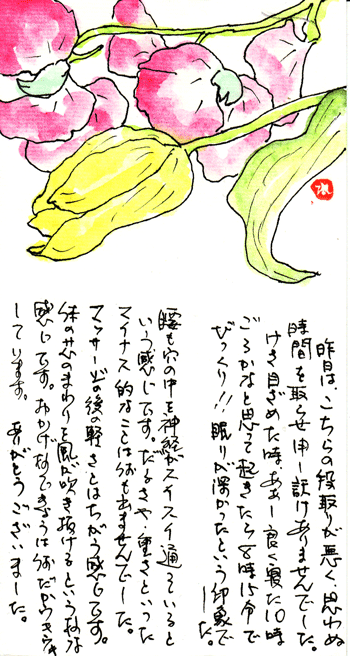 昨日は、こちらの段取りが悪く思わぬ
時間を取らせ申し訳ありませんでした。
けさ目ざめた時・ああー良く寝た10時
ごろかなと思って起きたら8時15分で
びっくり!!眠りが深かったという印象で
した。
腰も穴の中を神経がスイスイ通っていると
いう感じです。だるさや・重さといった
マイナス的なことは何もありませんでした。
マッサージの後の軽さとはちがう感じです。
体の芯のまわりを風が吹き抜けるという様な
感じです。おかげさまできょうは何だかウキウキ
しています。ありがとうございました。